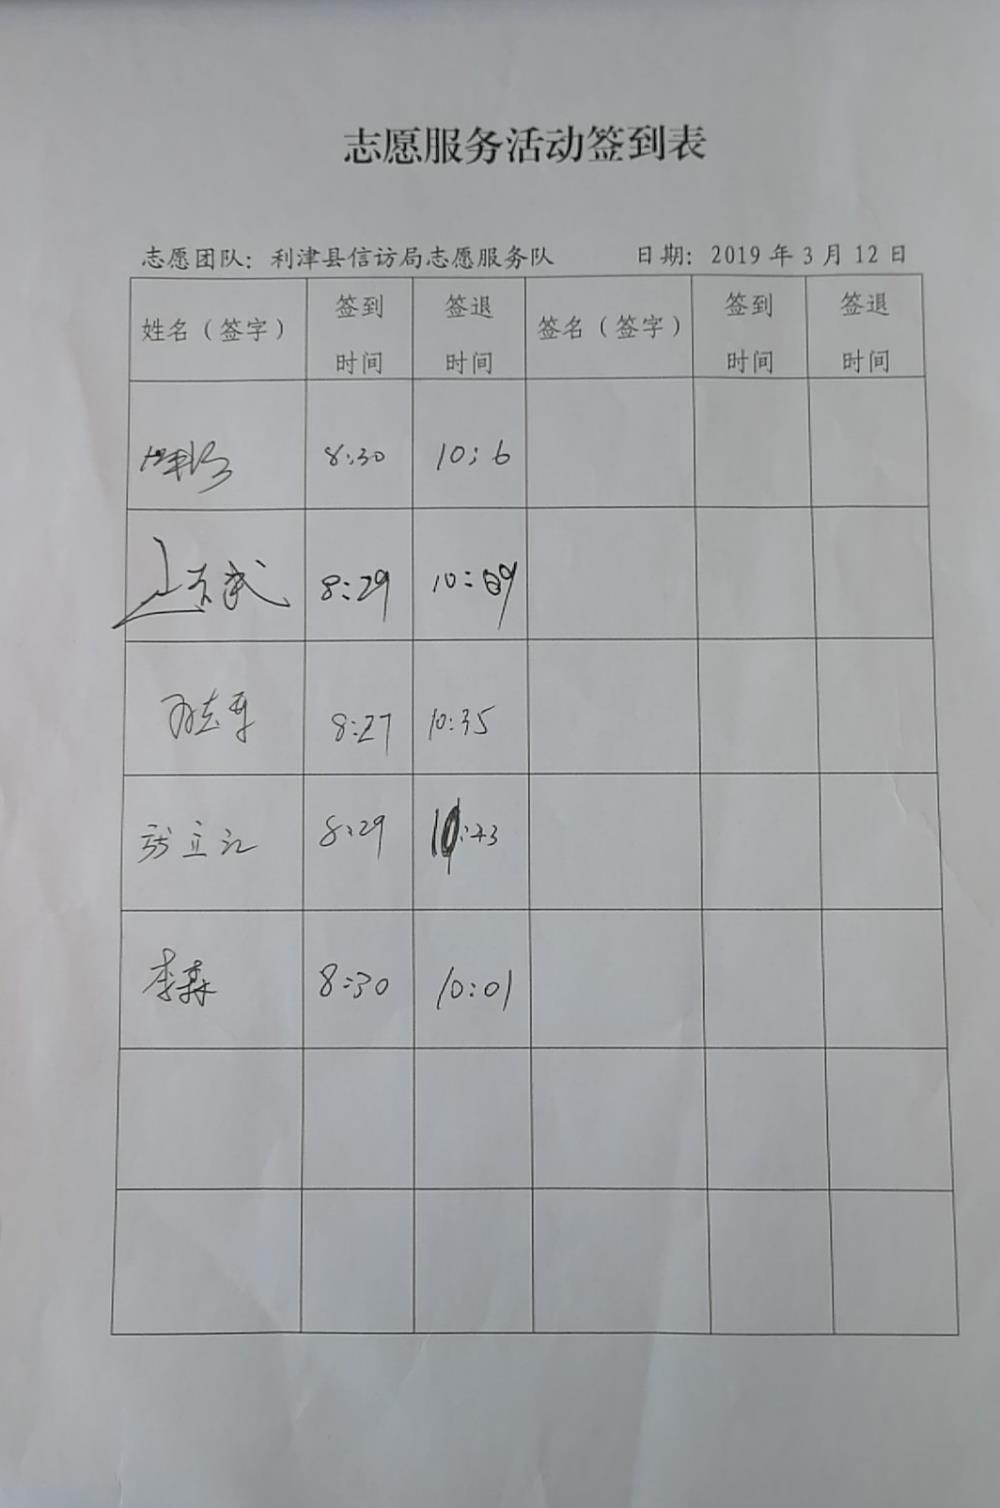 志愿服务活动签到表
志愿团队：利津县信访局志愿服务队 日期：2019 年 3 月 12 日
姓名（签字） 签到时间 签退时间 签名（签字） 签到时间 签退时间
8:30 10:6
8:29 10:
8:27 10:35
张立江 8:29 10:43
李森 8:30 10:01